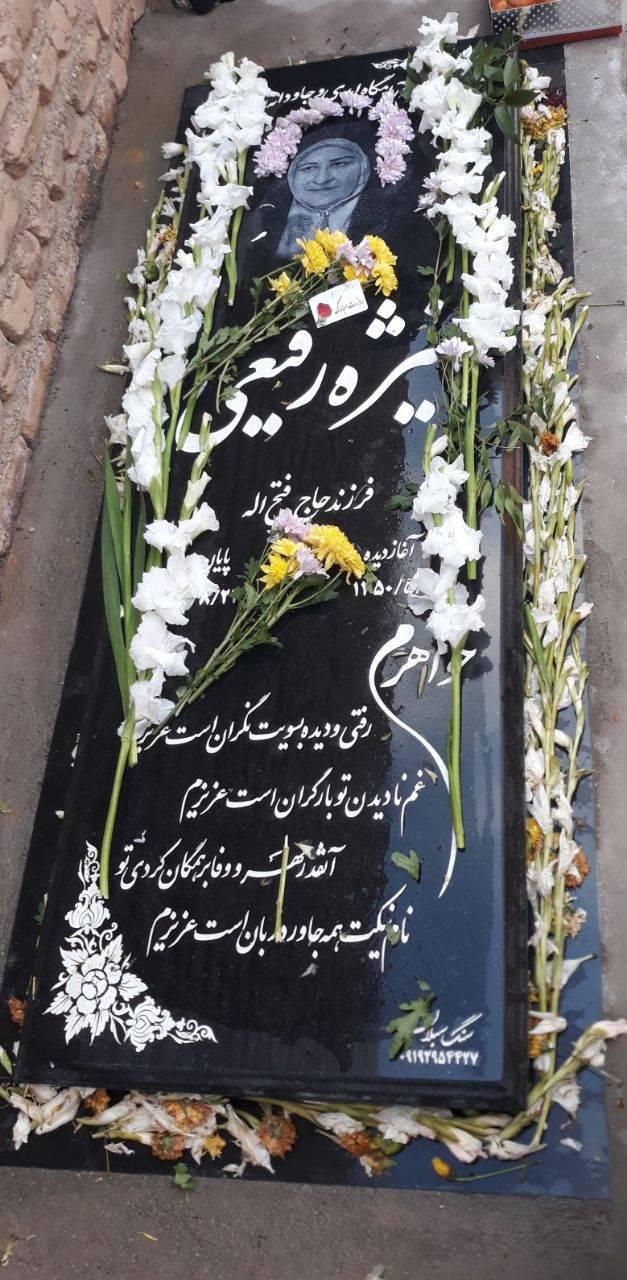 روزت مبارک
نیژه رفیعی
فرزند حاج فتح اله
آغاز دیده
پایان
خواهرم
رفتی و دیده بسویت نگران است عزیزم
غم نادیدن تو بار گران است عزیزم
آنقدر مهر و وفا بر همگان کردی تو
نام نیکت همه جا ورد زبان است عزیزم
سنگ سبلان
۰۹۱۹۲۹۵۴۴۲۷